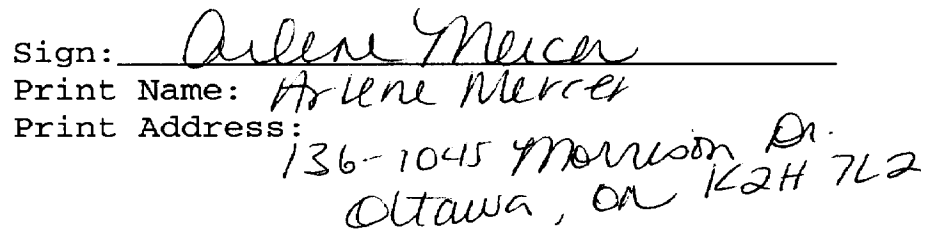 Sign: Arlene Mercer
Print Name: Arlene Mercer
Print Address:
136-1045 Morrison Dr.
Ottawa, ON K2H 7L2